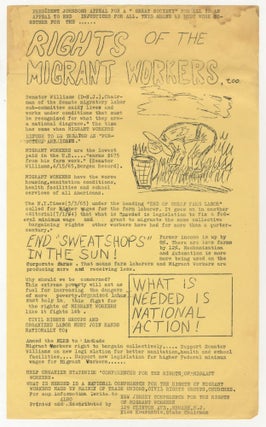 PRESIDENT JOHNSONS APPEAL FOR A " GREAT SOCIETY" FOR ALL IS AN
APPEAL TO END INJUSTICES FOR ALL. THIS MEANS AN
FOR THE ......
RIGHTS OF THE
MIGRANT WORKERS,
TOO
Senator Williams (D-N.J.),Chair-
man of the Senate migratory labor
sub-committee said; lives and
works under conditions that must
be recognized for what they are-
a national disgrace." The time
has come when MIGRANT WORKERS
REFUSE TO BE TREATED AS "FOR-
GOTTEN" AMERICANS."
MIGRANT WORKERS are the lowest
paid in the U.S.....
from his farm work." (Senator
Williams,
MIGRANT WORKERS have the worse
housing,sanitation conditions
health facilities and school
services of all Americans.
The N.Y. Times under the heading "END OF CHEAP FARM LABOR"
called for higher wages for the farm laborer. It goes on in another
what is needed is legislation to fix a fed-
eral minimum wage and grant to migrants the same collective
bargaining rights other workers have had for more than a quarter-
century."
END "SWEATSHOPS"
IN THE SUN!
Farmer income is up by
6%. There are less farms
by 12%. Mechanization
and automation is more
more being used on the
Corporate farms . That means farm laborers and Migrant Workers are
producing more and receiving less.
Why should we be concerned?
This extreme poverty will act as
fuel for increasing the dangers
of more poverty.Organized labor
must help in this fight for
the rights of MIGRANT WORKERS
like it fights for .
CIVIL RIGHTS GROUPS AND
ORGANIZED LABOR MUST JOIN HANDS
NATIONALLY TO;
WHAT IS
NEEDED IS
NATIONAL
ACTION!
Amend the NLRB to include
Migrant Workers right to bargain collectively..... Support Senator
Williams on new legislation for better sanitation,health and school
facilities.... Support new legislation for higher Federal minimum
wages for Migrant Workers.
HELP ORGANIZE STATEWIDE "CONFERENCES FOR THE RIGHTS OF MIGRANT
WORKERS.
WHAT IS NEEDED IS A NATIONAL CONFERENCE FOR THE RIGHTS OF MIGRANT
WORKERS MADE UP MAINLY OF TRADE UNIONS,CIVIL RIGHTS GROUPS,CHURCHES.
For any information write to NEW JERSEY CONFERENCE FOR THE RIGHTS
ALSO OF MIGRANT WORKERS
Printed and distributed by CLINTON AVE.,NEWARK,N.J.